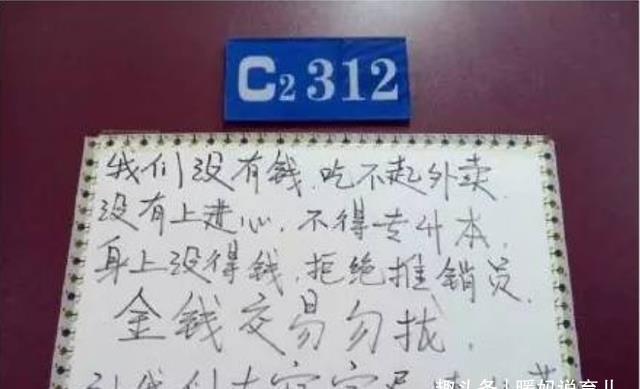 C2 312
我们没有钱.吃不起外卖.
没有上进心.不得专升本.
身上没得钱.拒绝推销员.
金钱交易勿扰.
趣头条 | 暖妈说育儿